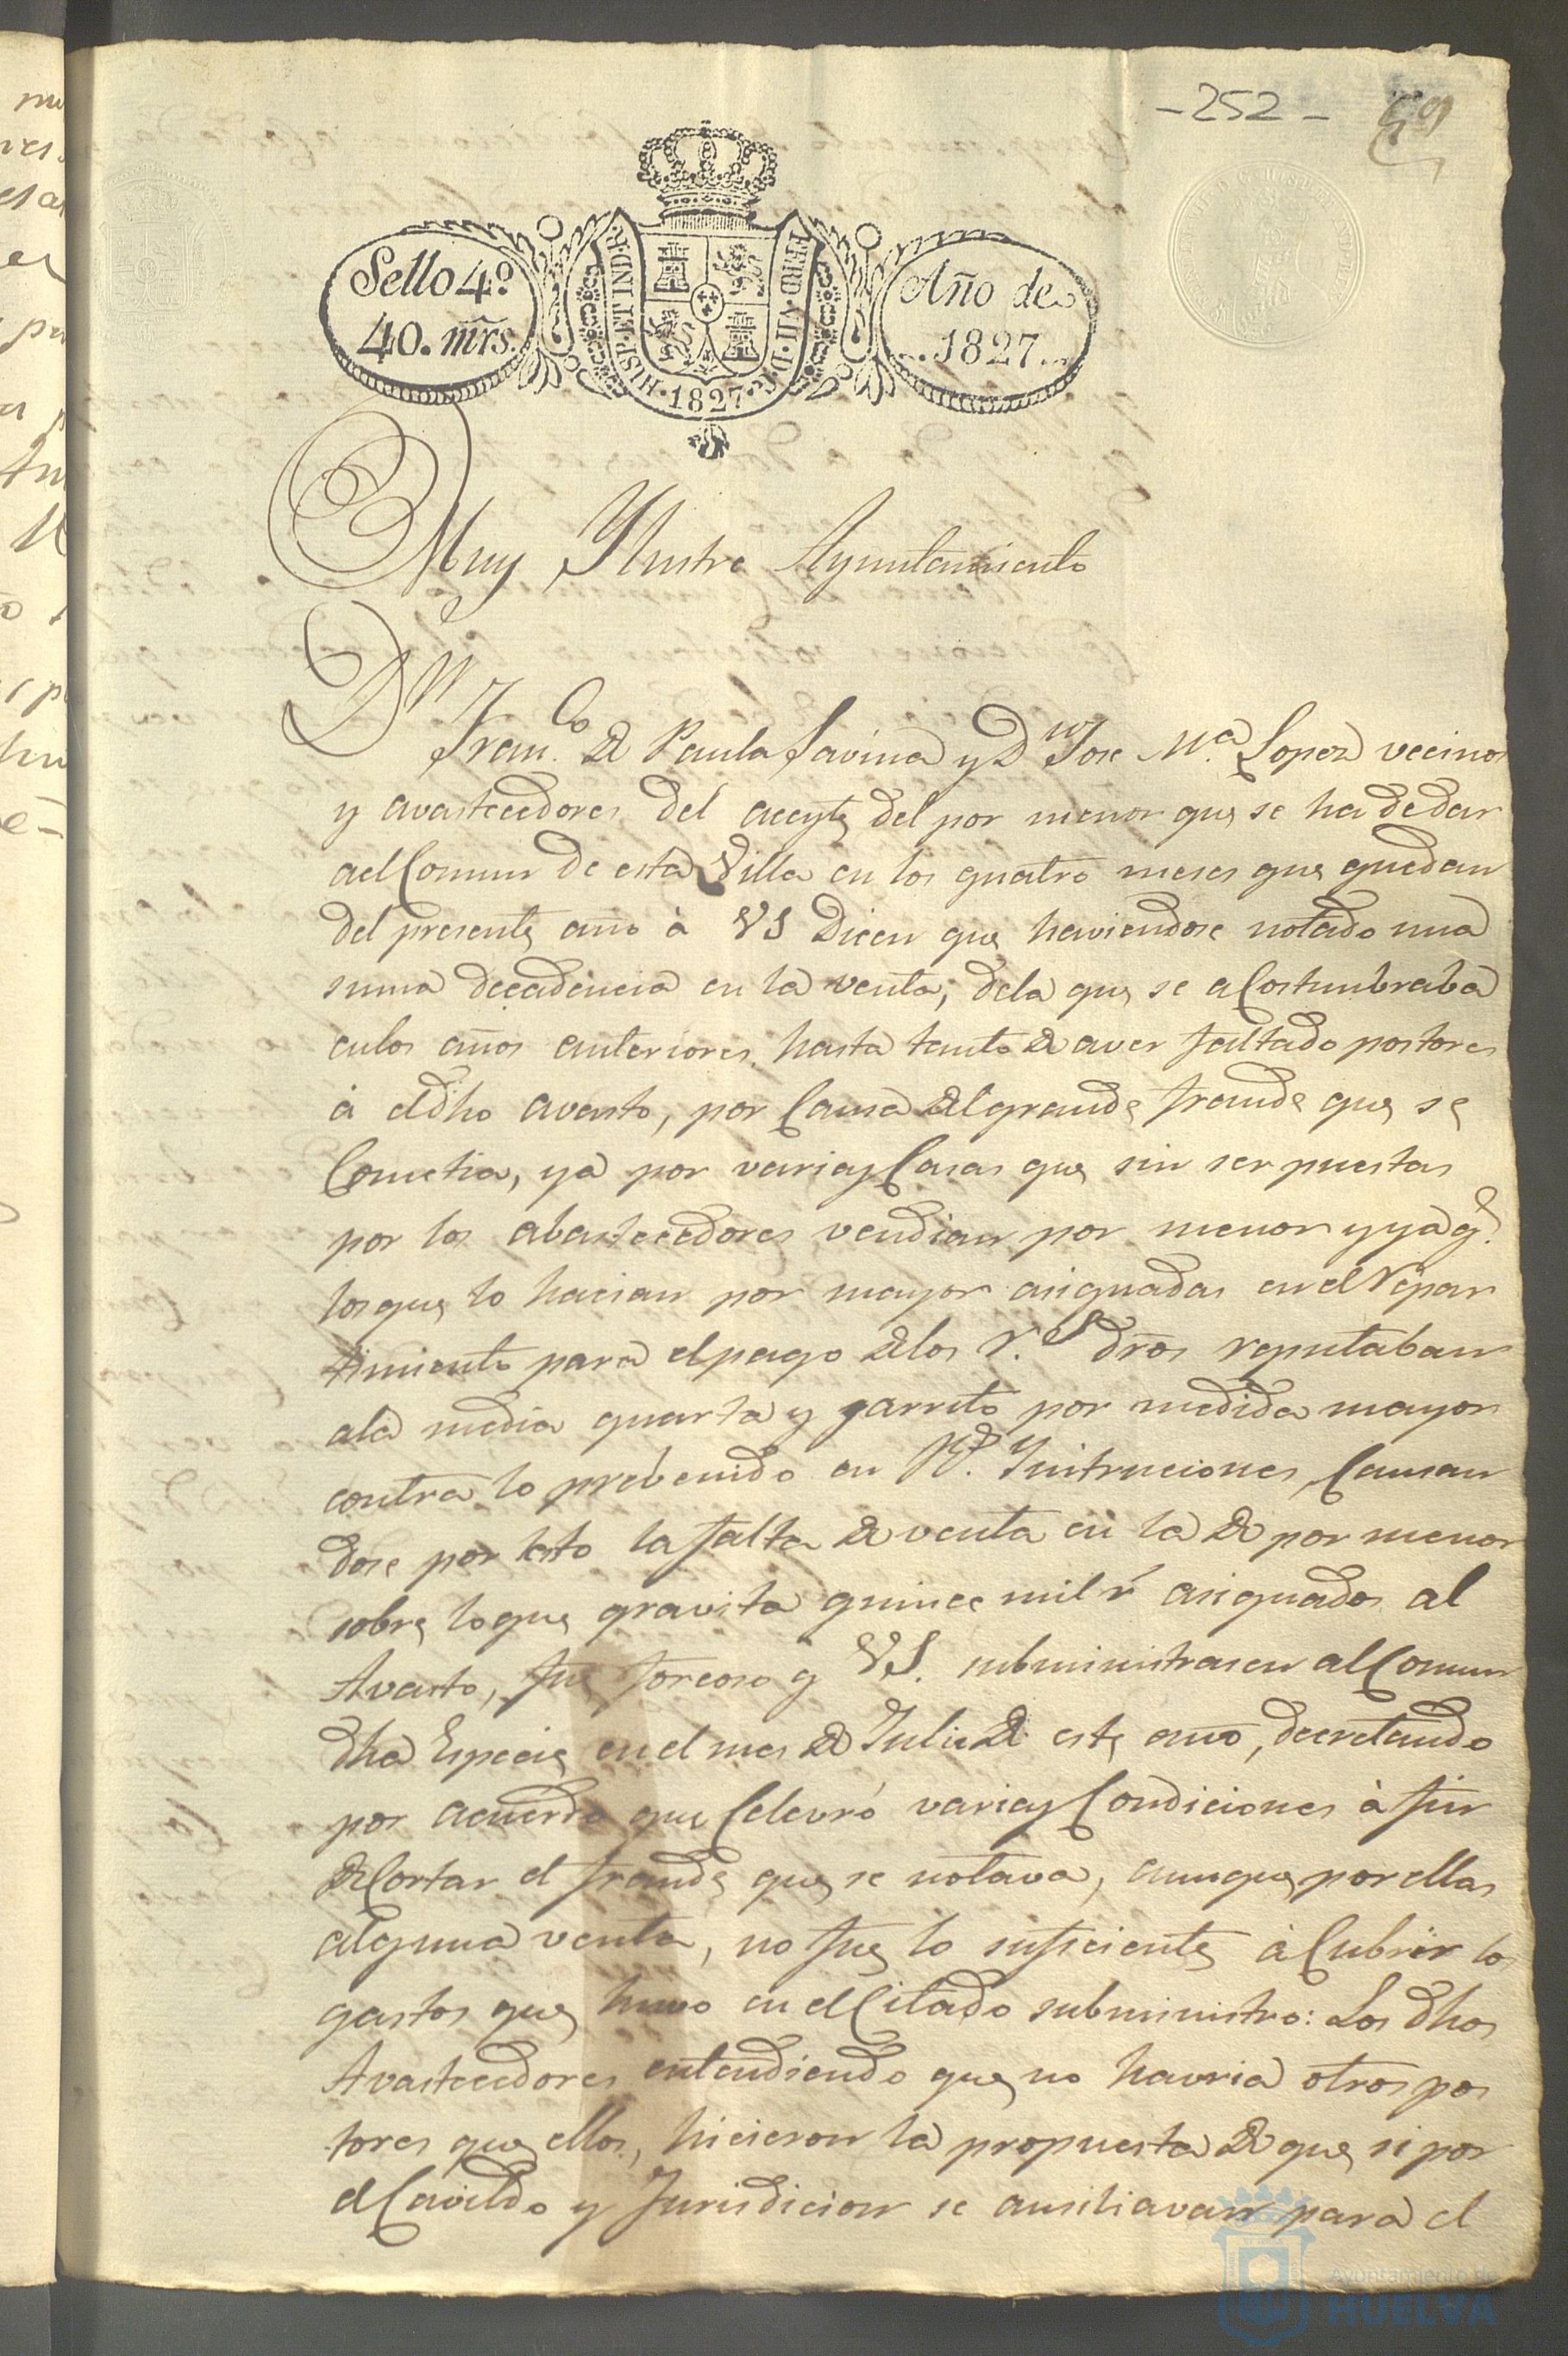 -252-
Sello 4º
40. mrs.
HISP. ET IND. R.
FERD. VII. D. G.
1827
Año de
1827
Muy Ylustre Ayuntamiento
Dn
Franco. de Paula Savina y Dn Jose Ma. Lopez vecinos
y avastecedores del aceyte del por menor que se ha de dar
ael Comun de esta Villa en los quatro meses que quedan
del presente año à VS Dicen que haviendose notado una
suma decadencia en la venta, de la que se acostumbraba
en los años anteriores, hasta tanto de aver faltado postores
à el dho avasto, por causa del grande fraude que se
Cometia, ya por varias Casas que sin ser puestas
por los abastecedores vendian por menor y ya q.e
los que lo hacian por mayor asignadas en el repar
timiento para el pago de los r.s dros reputaban
ala media quarta y jarrito por medida mayor
contra lo prebenido en Rs. Ynstruciones, Causan
dose por esto la falta de venta en la de por menor
sobre lo que gravita quince mil r.s asignados al
Avasto, fue forcoso q VS. subministrasen al Comun
dha Especie en el mes de Julio de este año, decretando
por acuerdo que Celevró varias Condiciones à fin
de Cortar el fraude que se notava, aunque por ellas
alguna venta, no fue lo suficiente à Cubrir los
gastos que huvo en el Citado subministro: Los dhos
Avastecedores entendiendo que no havria otros pos
tores que ellos, hicieron la propuesta de que si por
el Cavildo y Jurisdicion se ausiliavan para el
Ayuntamiento de
HUELVA